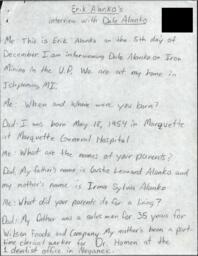 Erik Alanko's
interview with Dale Alanko
Me: This is Erik Alanko on the 5th day of
December I am interviewing Dale Alanko on Iron
Mining in the U.P. We are at my home in
Ishpeming MI.
Me: When and where were you born?
Dad: I was born May 18, 1954 in Marquette
at Marquette General Hospital.
Me: What are the names of your parents?
Dad: My father's name is Leonard Alanko and
my mother's name is Irma Sylvia Alanko
Me: What did your parents do for a living?
Dad: My father was a sales men for 35 years for
Wilson Foods and Company. My mother's been a part-
time clerical worker for Dr. Homen at the
dentist office in Negaunee.